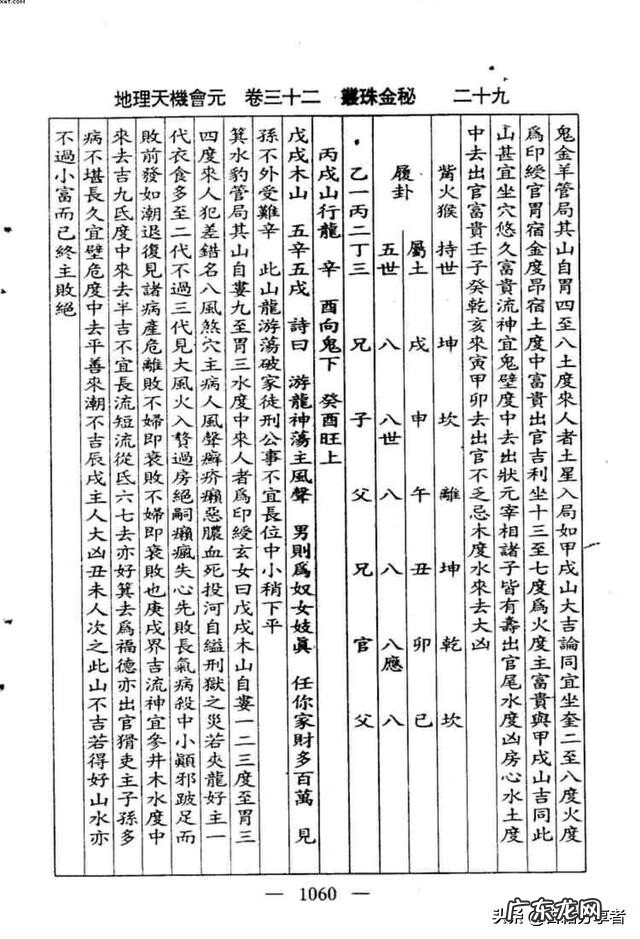 地理天機會元　卷三十二　叢珠金秘　二十九
鬼金羊管局其山自胃四至八土度來人者土星入局如甲戌山大吉論同宜坐奎二至八度火度
為印綬官胃宿金度昂宿土度中富貴出官吉利坐十三至七度為火度主富貴與甲戌山吉同此
山甚宜坐穴悠久富貴流神宜鬼壁度中去出狀元宰相諸子皆有壽出官尾水度凶房心水土度
中去出官富貴壬子癸乾亥來寅甲卯去出官不乏忌木度水來去大凶
觜火猴　持世　坤　坎　離　坤　乾　坎
屬土　戌　申　午　丑　卯　巳
履卦　五世　八　八世　八　八　八應　八
乙一丙二丁三　兄　子　父　兄　官　父
丙戌山行龍　辛　酉向鬼下　癸酉旺上
戊戌木山　五辛五戌　詩曰　游龍神蕩主風聲　男則為奴女妓眞　任你家財多百萬　見
孫不外受難辛　此山龍游蕩破家徒刑公事不宜長位中小稍下平
箕水豹管局其山自婁九至胃三水度中來人者為印綬玄女曰戊戌木山自婁一二三度至胃三
四度來人犯差錯名八風煞穴主病人風聲癬疥癩惡膿血死投河自縊刑獄之災若夾龍好主一
代衣食多至二代不過三代見大風火入贅過房絕嗣癩瘋失心先敗長氣病殺中小顚邪跛足而
敗前發如潮退復見諸病產危離敗不婦即衰敗不婦即衰敗也庚戌界吉流神宜參井木水度中
來去吉九氐度中來去半吉不宜長流短流從氐六七去亦好箕去為福德亦出官猾吏主子孫多
病不堪長久宜壁危度中去平善來潮不吉辰戌主人大凶丑未人次之此山不吉若得好山水亦
不過小富而已終主敗絕
— 1060 —
广东龙网